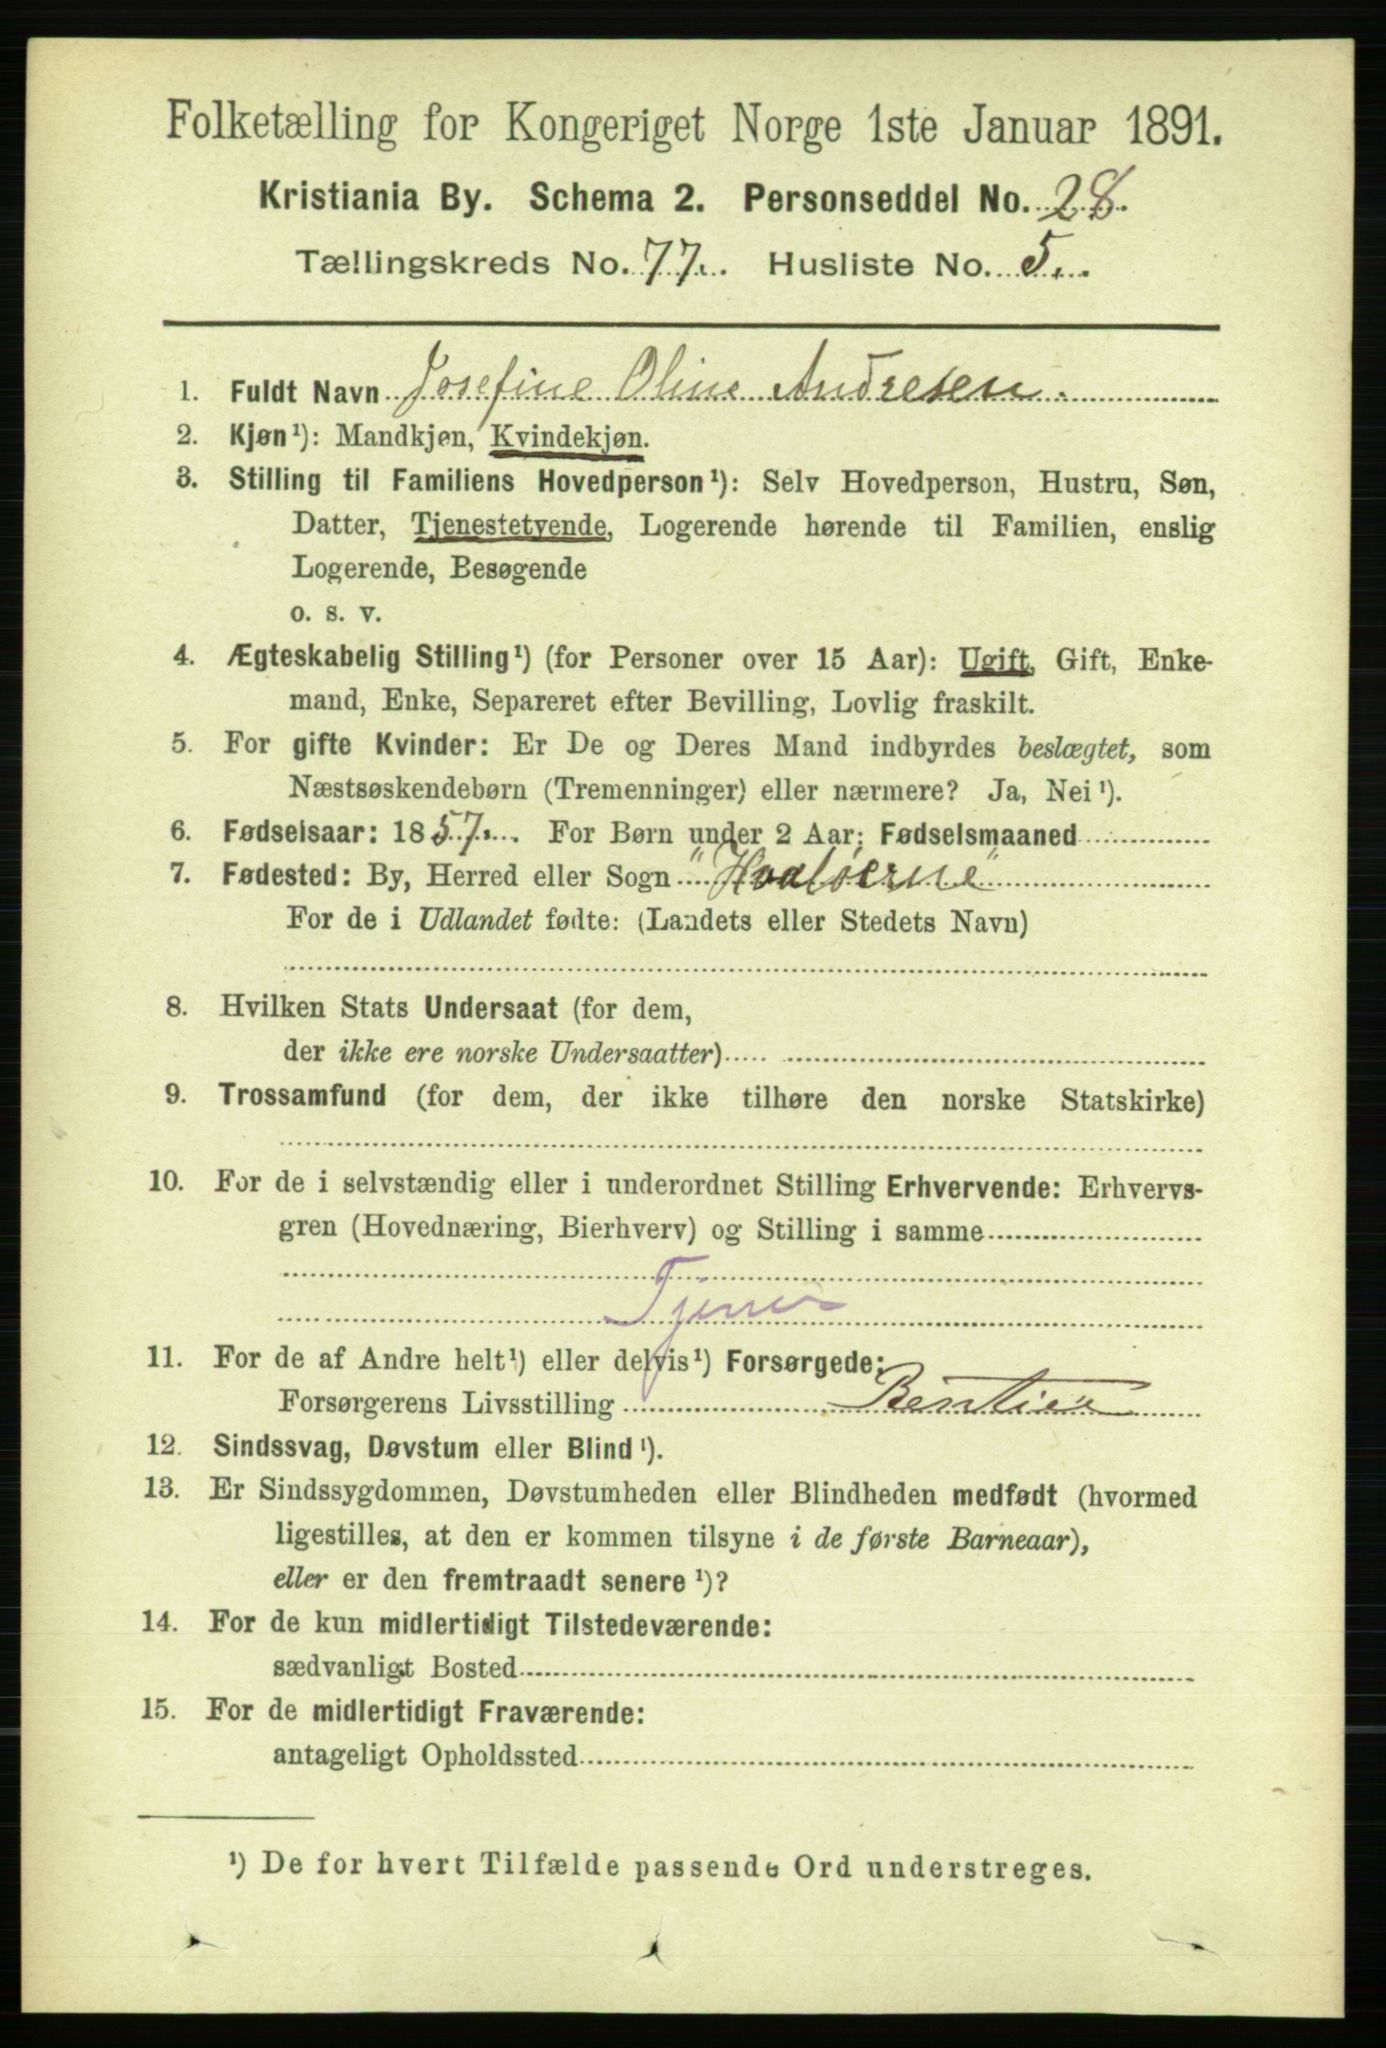 Folketælling for Kongeriget Norge 1ste Januar 1891.
Kristiania By. Schema 2. Personseddel No. 28.
Tællingskreds No. 77. Husliste No. 5.
1. Fuldt Navn Josefine Oline Andresen.
2. Kjøn¹): Mandkjøn, Kvindekjøn.
3. Stilling til Familiens Hovedperson¹): Selv Hovedperson, Hustru, Søn,
Datter, Tjenestetyende, Logerende hørende til Familien, enslig
Logerende, Besøgende
o. s. v.
4. Ægteskabelig Stilling¹) (for Personer over 15 Aar): Ugift, Gift, Enke-
mand, Enke, Separeret efter Bevilling, Lovlig fraskilt.
5. For gifte Kvinder: Er De og Deres Mand indbyrdes beslægtet, som
Næstsøskendebørn (Tremenninger) eller nærmere? Ja, Nei¹).
6. Fødselsaar: 1857. For Børn under 2 Aar: Fødselsmaaned
7. Fødested: By, Herred eller Sogn "Hvaløerne"
For de i Udlandet fødte: (Landets eller Stedets Navn)
8. Hvilken Stats Undersaat (for dem,
der ikke ere norske Undersaatter)
9. Trossamfund (for dem, der ikke tilhøre den norske Statskirke)
10. For de i selvstændig eller i underordnet Stilling Erhvervende: Erhvervs-
gren (Hovednæring, Bierhverv) og Stilling i samme
Tjener
11. For de af Andre helt¹) eller delvis¹) Forsørgede:
Forsørgerens Livsstilling Rentier
12. Sindssvag, Døvstum eller Blind¹).
13. Er Sindssygdommen, Døvstumheden eller Blindheden medfødt (hvormed
ligestilles, at den er kommen tilsyne i de første Barneaar),
eller er den fremtraadt senere¹)?
14. For de kun midlertidigt Tilstedeværende:
sædvanligt Bosted
15. For de midlertidigt Fraværende:
antageligt Opholdssted
¹) De for hvert Tilfælde passende Ord understreges.